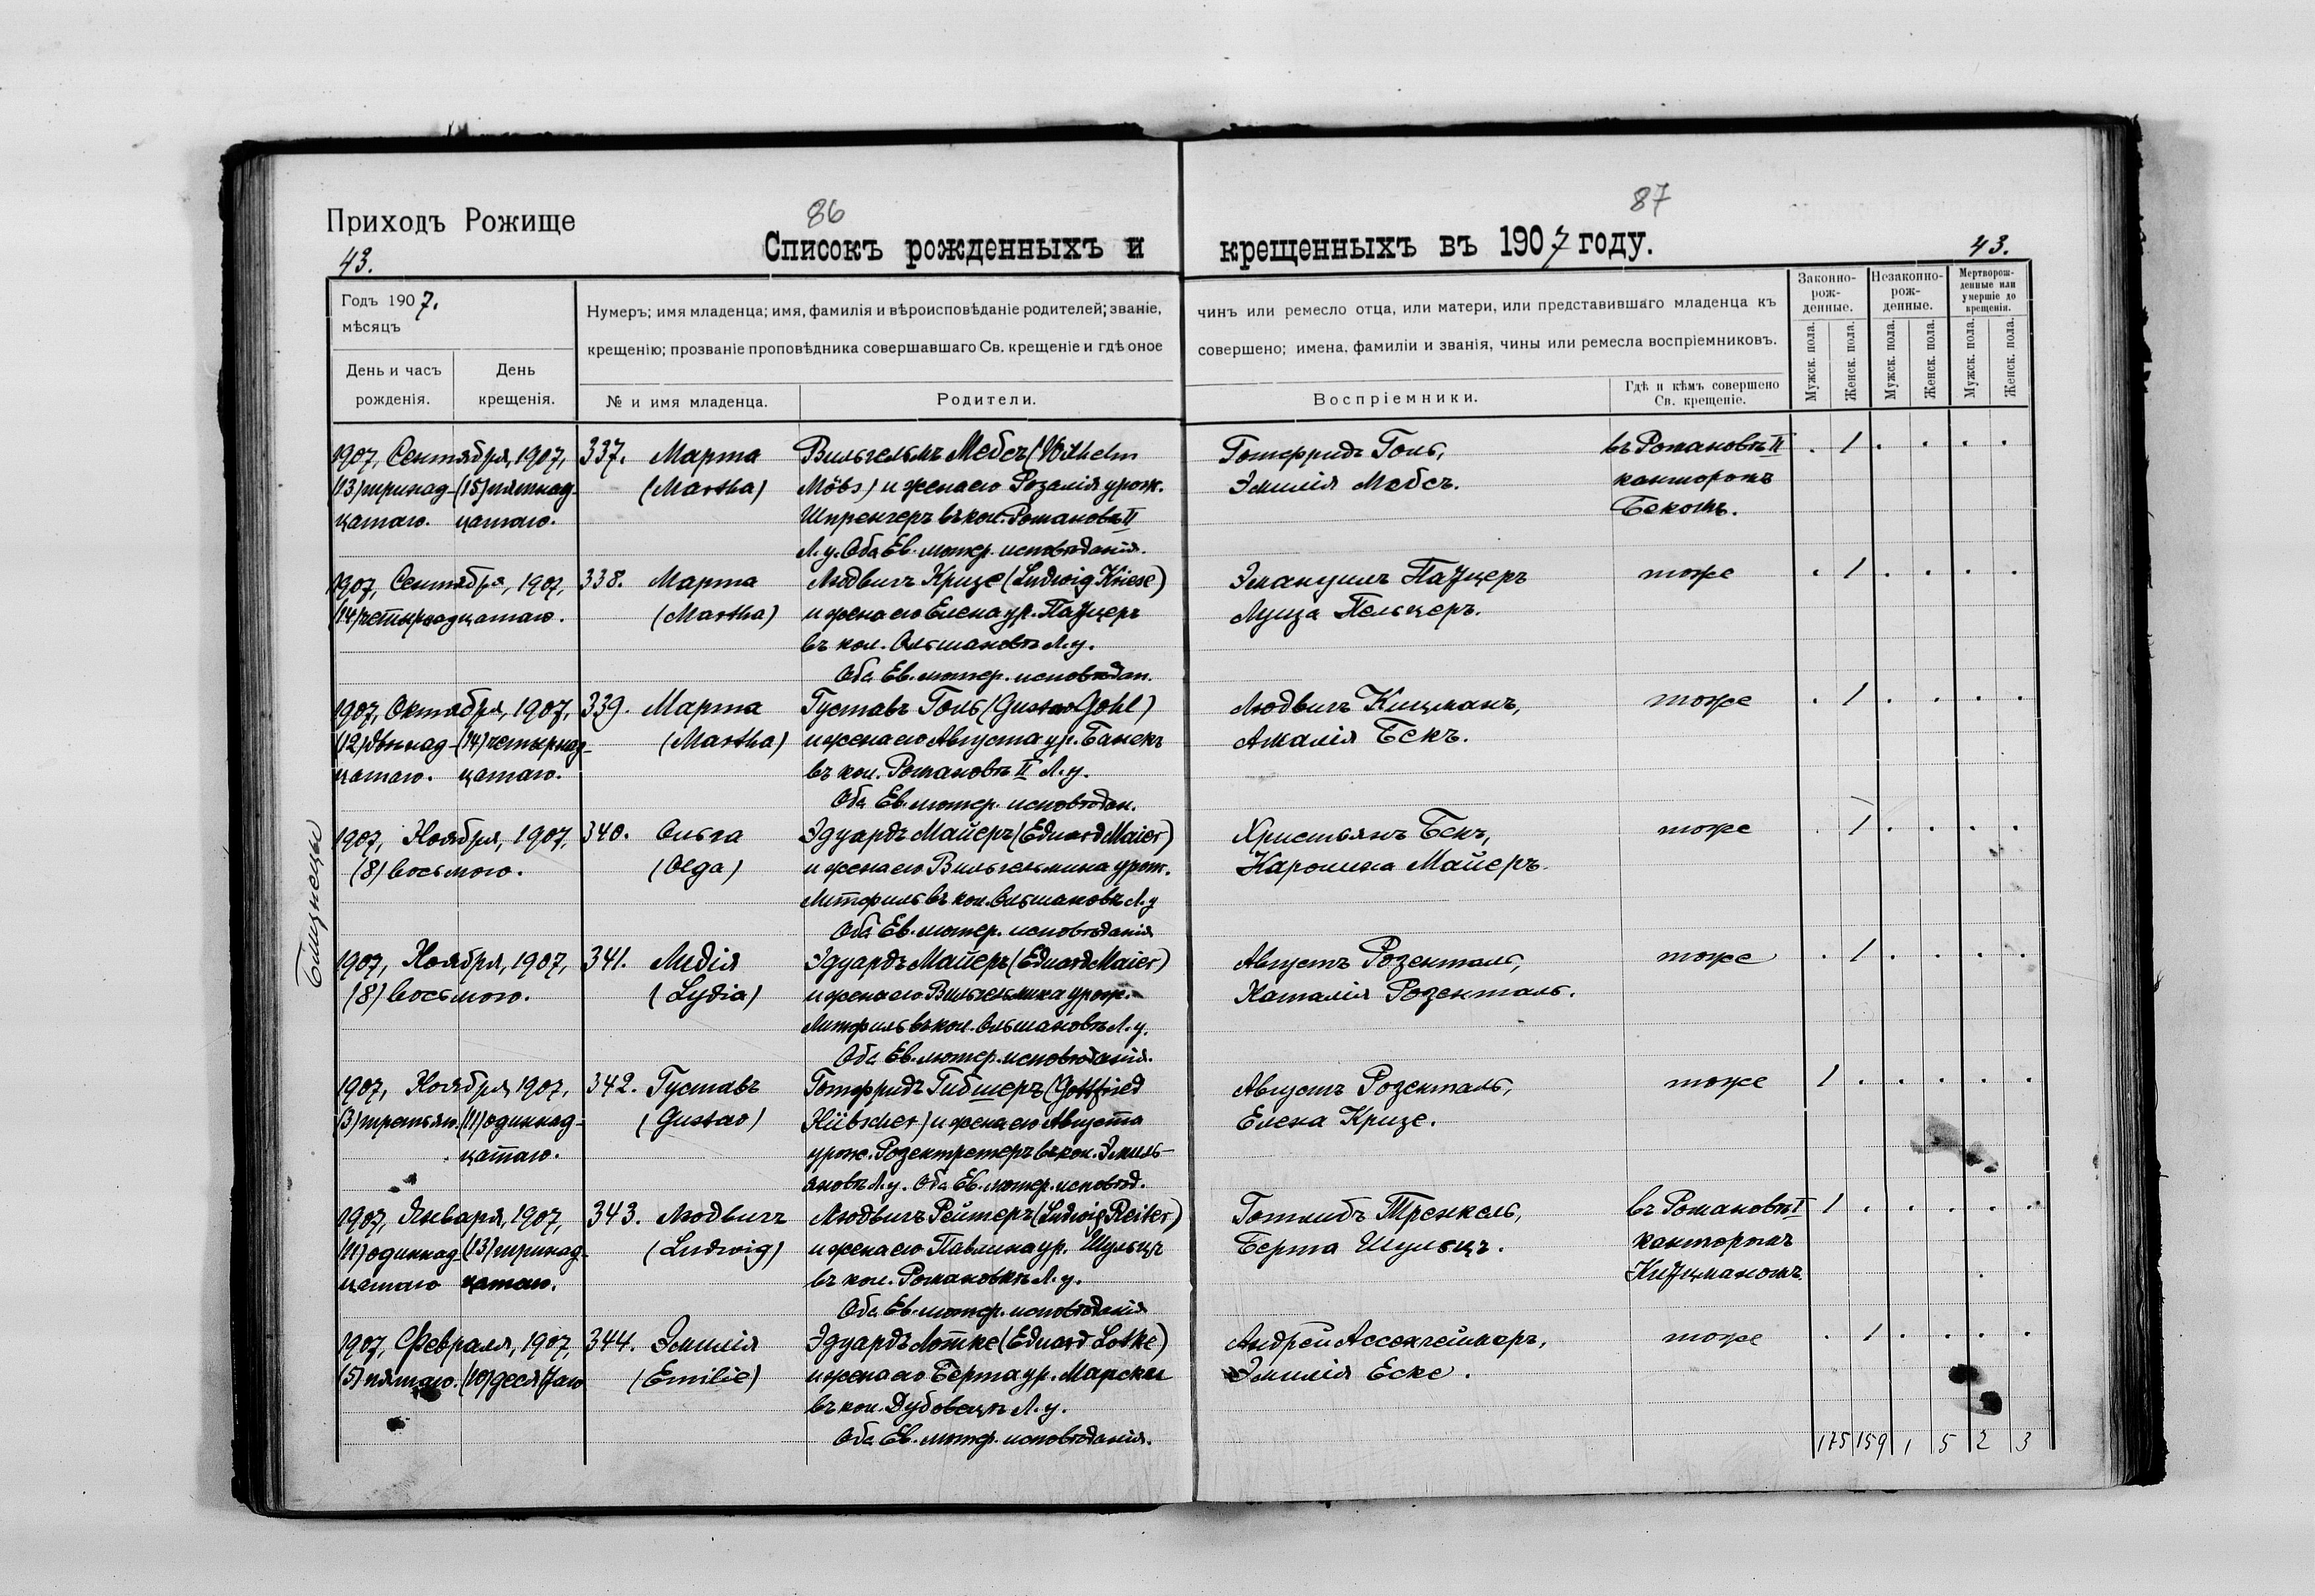 Приходъ Рожище
86
87
43.
Списокъ рожденныхъ и
крещенныхъ въ 1907 году.
43.
Годъ 1907.
мѣсяцъ
День и часъ рожденія.
День крещенія.
Нумеръ; имя младенца; имя, фамилія и вѣроисповѣданіе родителей; званіе,
крещенію; прозваніе проповѣдника совершавшаго Св. крещеніе и гдѣ оное
№ и имя младенца.
Родители.
чинъ или ремесло отца, или матери, или представившаго младенца къ
совершено; имена, фамиліи и званія, чины или ремесла воспріемниковъ.
Воспріемники.
Гдѣ и кѣмъ совершено
Св. крещеніе.
Законно-
рож-
денные.
Незаконно-
рож-
денные.
Мертворож-
денные или
умершіе до
крещенія.
Мужск. пола.
Женск. пола.
Мужск. пола.
Женск. пола.
Мужск. пола.
Женск. пола.
1907, Сентября, 1907, 337. Марта Вильгельмъ Мебсъ (Wilhelm
(13) тринад- (15) пятнад- (Martha) Möbs) и жена его Розалія урож.
цатаго. цатаго. Шпренгеръ въ кол. Романовъ II
Л. у. Оба Ев. лютер. исповѣданія.
Готфридъ Голь, въ Романовѣ II . 1 . . . .
Эмилія Мебсъ. канторомъ
Бекомъ.
1907, Сентября, 1907, 338. Марта Людвигъ Кризе (Ludwig Kriese)
(14) четырнадцатаго. (Martha) и жена его Елена ур. Пауцеръ
въ кол. Ольшановѣ Л. у.
Оба Ев. лютер. исповѣдан.
Эмануилъ Пауцеръ тоже . 1 . . . .
Луиза Пельцеръ.
1907, Октября, 1907, 339. Марта Густавъ Голь (Gustav Gohl)
(12) двѣнад- (14) четырнад- (Martha) и жена его Августа ур. Банекъ
цатаго. цатаго. въ кол. Романовѣ II Л. у.
Оба Ев. лютер. исповѣдан.
Людвигъ Кицманъ, тоже . 1 . . . .
Амалія Бекъ.
Близнецы
1907, Ноября, 1907, 340. Ольга Эдуардъ Майеръ (Eduard Maier)
(8) восьмого. (Olga) и жена его Вильгельмина урож.
въ кол. Ольшановѣ Л. у
Оба Ев. лютер. исповѣданія
Христьянъ Бекъ, тоже . 1 . . . .
Каролина Майеръ.
1907, Ноября, 1907, 341. Лидія Эдуардъ Майеръ (Eduard Maier)
(8) восьмого. (Lydia) и жена его Вильгельмина урож.
въ кол. Ольшановѣ Л. у.
Оба Ев. лютер. исповѣданія.
Августъ Розенталь, тоже . 1 . . . .
Наталія Розенталь.
1907, Ноября, 1907, 342. Густавъ Готфридъ Гибшеръ (Gottfried
(3) третьяго. (11) одиннад- (Gustav) Hübscher) и жена его Августа
цатаго. урож. Розентретеръ въ кол. Эмиль-
яновѣ Л. у. Оба Ев. лютер. исповѣд.
Августъ Розенталь, тоже 1 . . . . .
Елена Кризе.
1907, Января, 1907, 343. Людвигъ Людвигъ Рейтеръ (Ludwig Reiter)
(11) одиннад- (13) тринад- (Ludwig) и жена его Павлина ур. Шульцъ
цатаго цатаго. въ кол. Романовкѣ Л. у.
Оба Ев. лютер. исповѣданія
Готлибъ Тренкель, въ Романовѣ I 1 . . . . .
Берта Шульцъ. канторомъ
Кицманомъ.
1907, Февраля, 1907, 344. Эмилія Эдуардъ Лотке (Eduard Lotke)
(5) пятаго. (10) десятаго (Emilie) и жена его Берта ур.
въ кол. Дубовецъ Л. у.
Оба Ев. лютер. исповѣданія.
Андрей Ассенгеймеръ, тоже . 1 . . . .
Эмилія Еске.
175 159 1 5 2 3